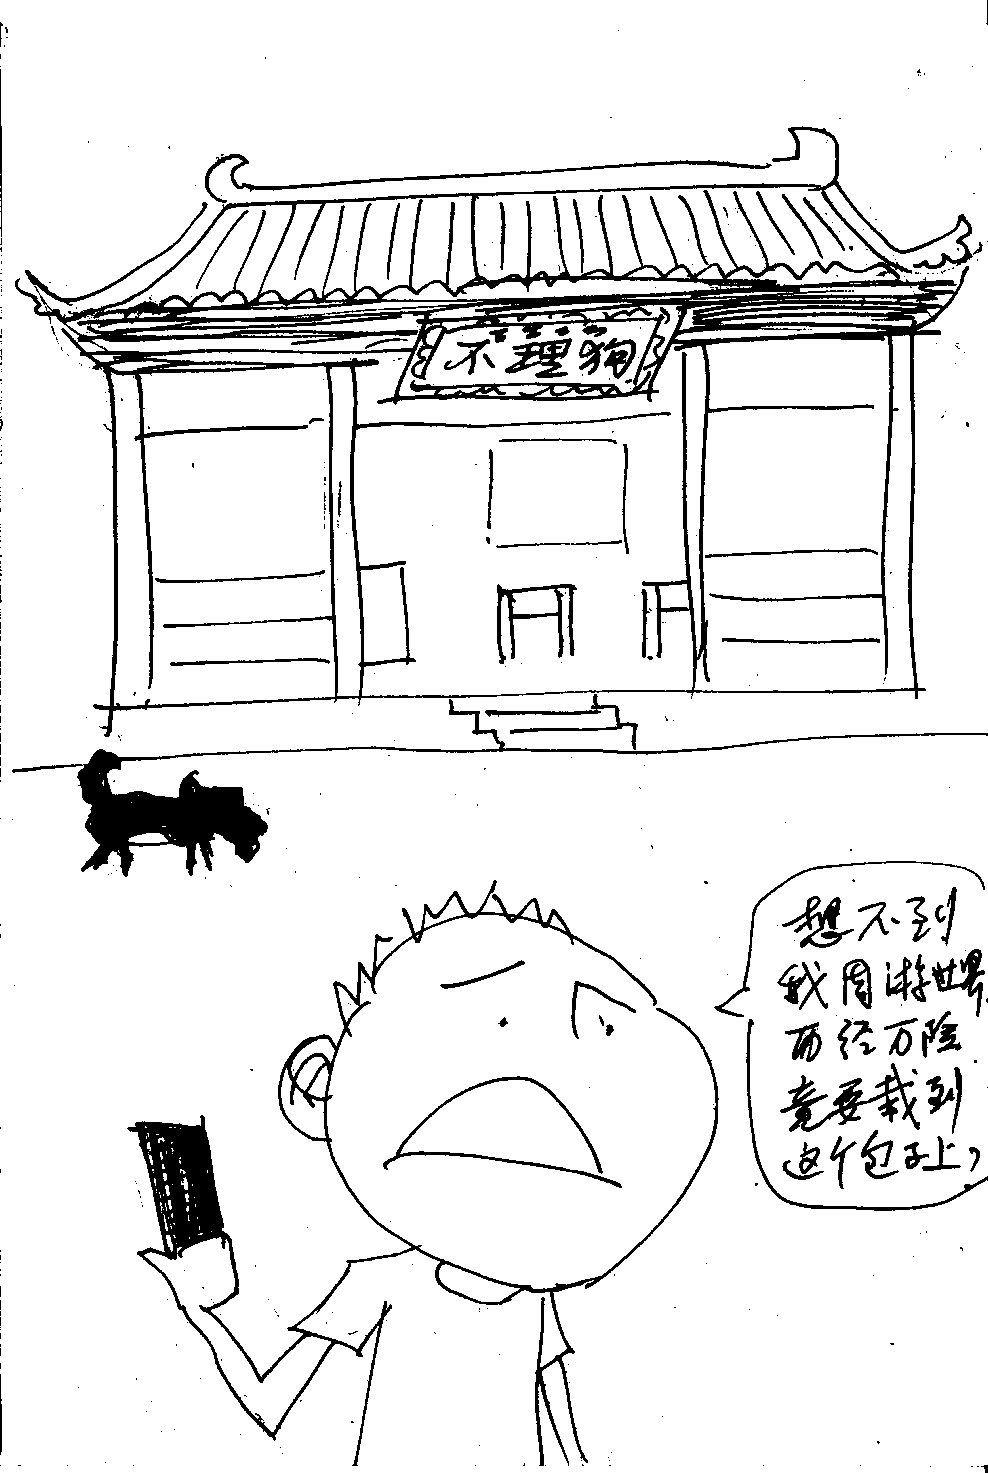 不理狗
想不到
我周游世界
历经万险
竟要栽到
这个包子上